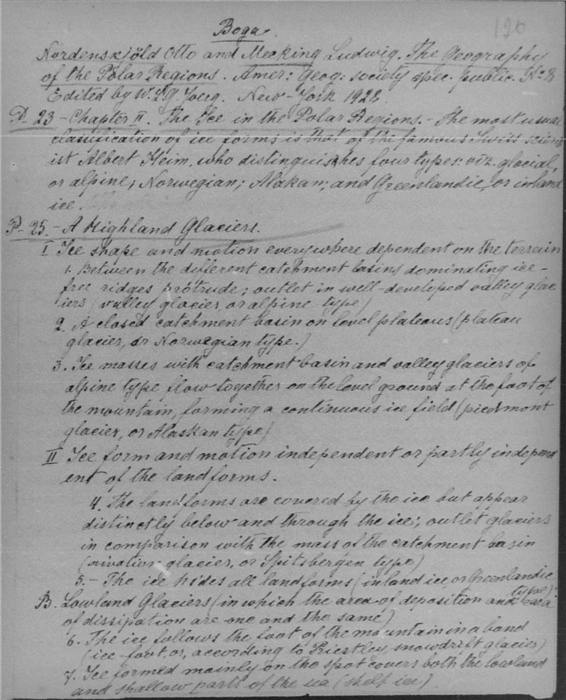 Boga
190
Nordenskjöld Otto and Mecking Ludwig. The Geography
of the Polar Regions. Amer: Geog: society spec. public. No 8
Edited by W. L. G Joerg. New-York 1928
P. 23 - Chapter II. The Ice in the Polar Regions. - The most usual
classification of ice forms is that of the famous Swiss scient
ist Albert Heim, who distinguishes four types: viz. glacial,
or alpine; Norwegian; Alaskan; and Greenlandic, or inland
ice.
P. 25. - A Highland Glaciers.
I Ice shape and motion everywhere dependent on the terrain
1. Between the different catchment basins dominating ice-
free ridges protrude; outlet in well-developed valley glac
iers (valley glacier, or alpine type)
2. A closed catchment basin on level plateaus (plateau
glacier, or Norwegian type.)
3. Ice masses with catchment basin and valley glaciers of
alpine type flow together on the level ground at the foot of
the mountain, forming a continuous ice field (piedmont
glacier, or Alaskan type)
II Ice form and motion independent or partly independ
ent of the landforms.
4. The landforms are covered by the ice but appear
distinctly below and through the ice; outlet glaciers
in comparison with the mass of the catchment basin
(nivation glacier, or Spitsbergen type)
5. - The ice hides all landforms (inland ice, or Greenlandic
type)
B. Lowland Glaciers (in which the area of deposition and area
of dissipation are one and the same)
6. The ice follows the foot of the mountain in a band
(ice-foot, or, according to Priestley snowdrift glacier)
7. Ice formed mainly on the spot covers both the lowland
and shallow parts of the sea (shelf ice)